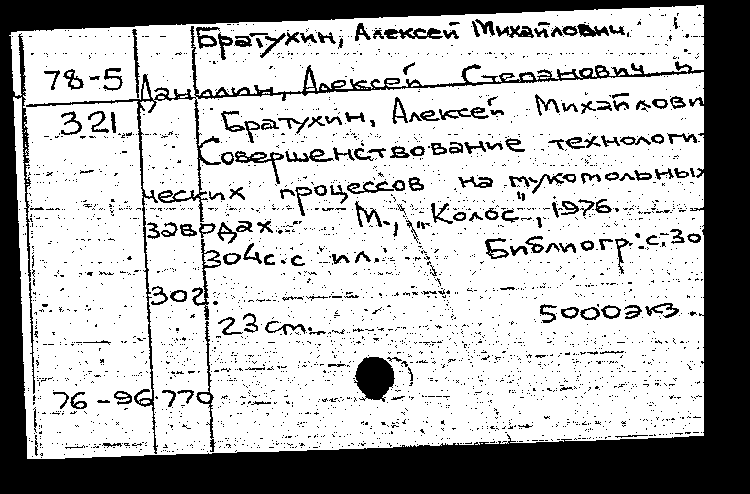 Братухин, Алексей Михайлович.
78-5 Данилин, Алексей Степанович и
321 Братухин, Алексей Михайлови
Совершенствование технологи-
ческих процессов на мукомольных
заводах. М., „Колос", 1976.
304с.с ил. Библиогр.: с.30
302.
23 см. 5000экз.
76-96770